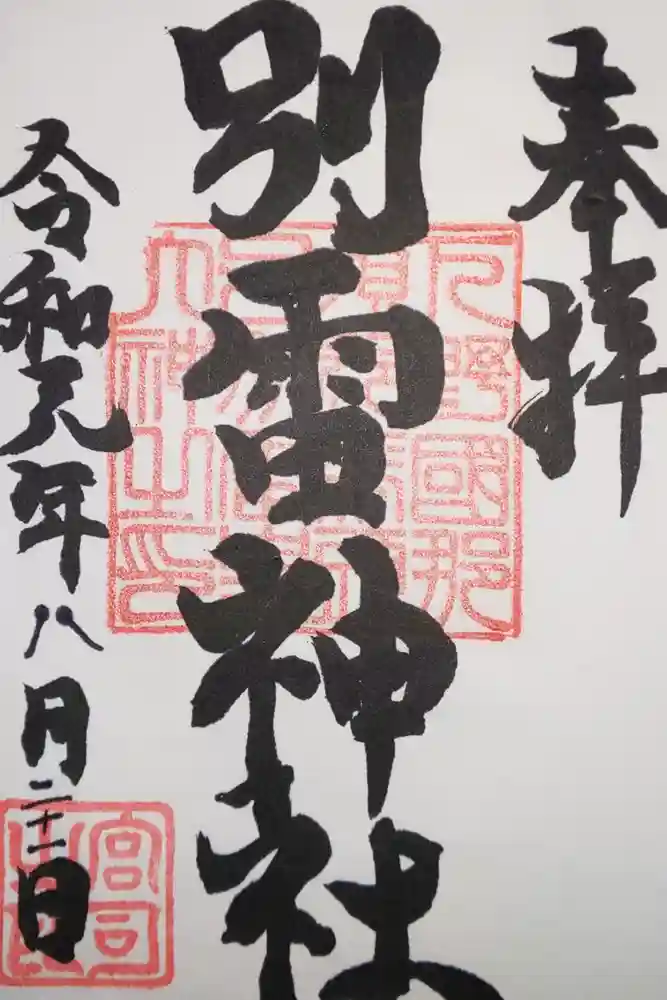 奉拝
別雷神社
令和元年八月二十二日
宮司之印